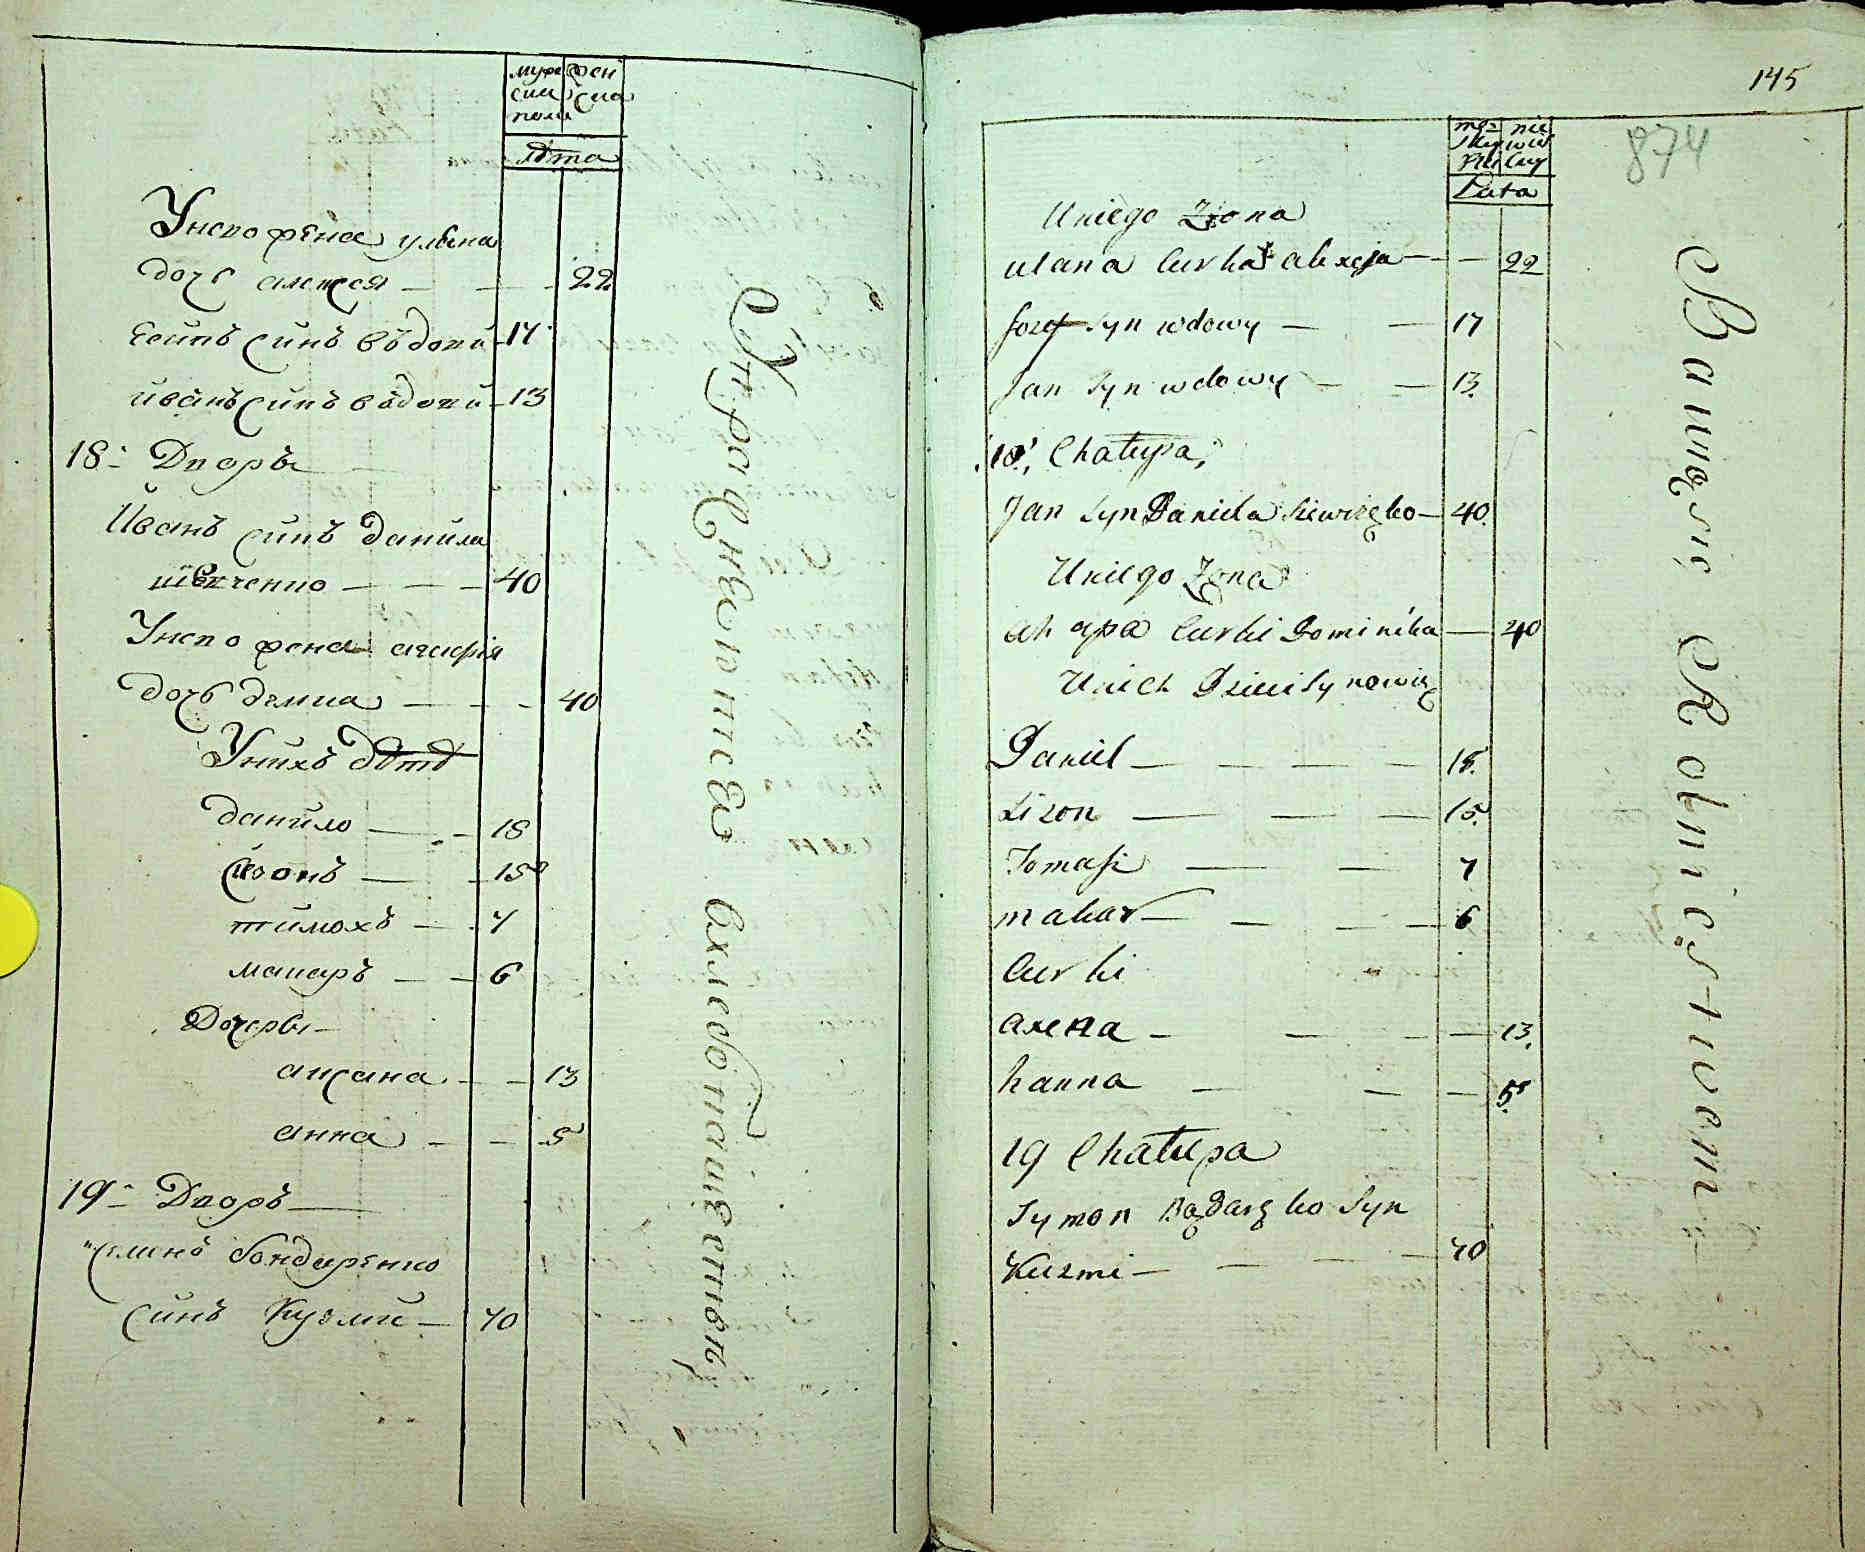 муже
скаго
пола
жен
скаго
лѣта
У него жена улыана
дочъ алексея — — — 22
есипъ синъ въдови — 17
иванъ синъ въдови — 13
18 Дворъ
Иванъ синъ данила
шевченко — — — 40
У него жена агафія
дочъ демка — — — 40
У нихъ дѣти
данило — — 18
сизонъ — — 15
тимохъ — — 7
макаръ — — 6
Дочеры —
аксана — — 13
анна — — 5
19 Дворъ —
семенъ бондаренко
синъ Кузми — 70
Упражняютися в хлебопашестве
145
874
mę-
skey
płci
nie
wies
ciey
Lata
U niego Żona
ulana Curka alexeja — — 22
Jozef Syn wdowy — — 17
Jan Syn wdowy — — 13
18, Chałupa,
Jan Syn Daniela Szewczęko — 40
U niego Żona
ahapa Curki Dominika — 40
U nich Dzieci Synowię
Daniel — — — — 18.
Sizon — — — 15.
Tomasz — — 7
makar — — — — 6
Curki
axena — — — — 13.
hanna — — — 5.
19 Chałupa
Symon Bądaręko Syn
Kuzmi — — — — 70
Bawią się Rolnicstwem